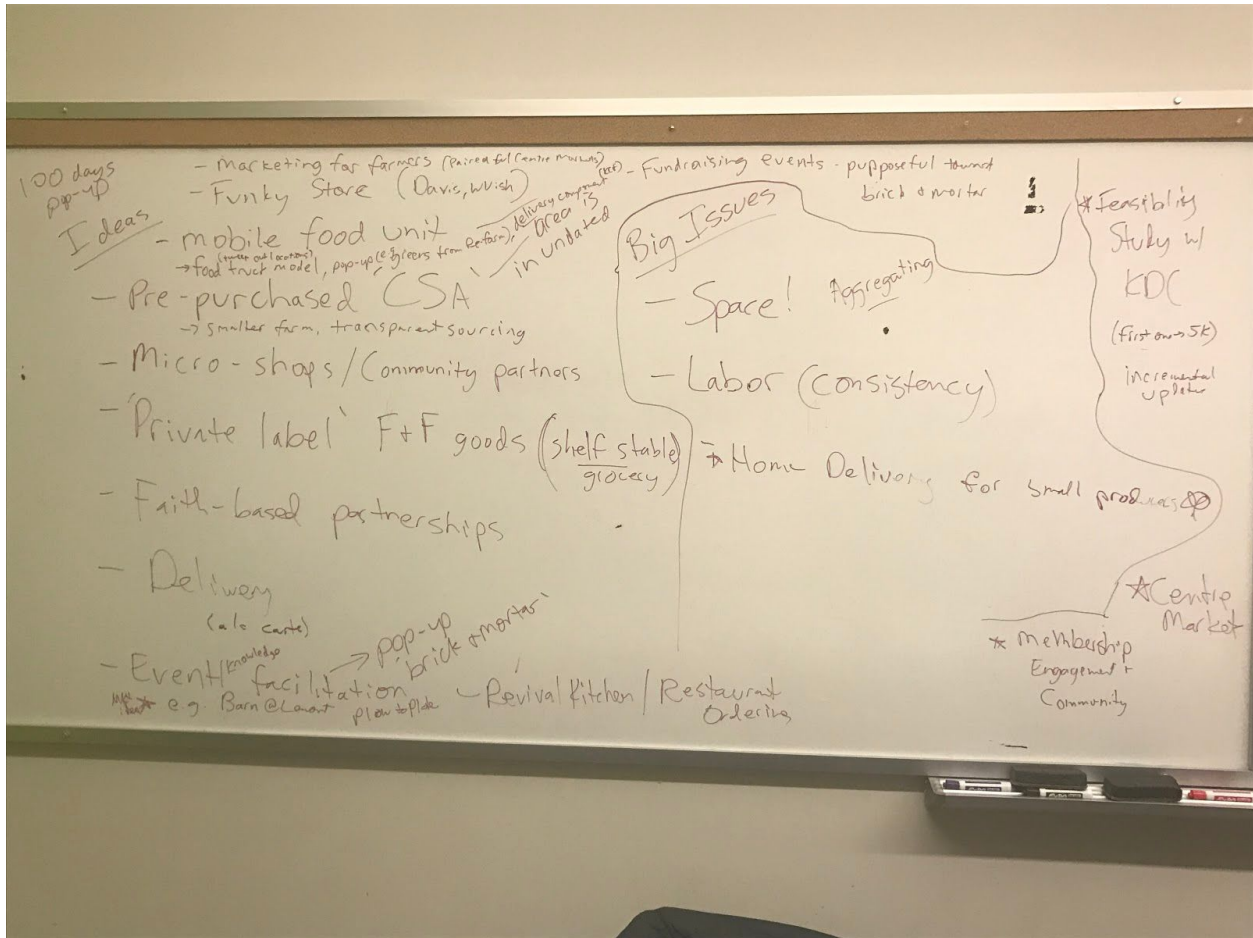 100 days
pop-up
Ideas
- Marketing for farmers
- Funky Store (Davis, wvish)
- mobile food unit
→ food truct model, pop-up (e.g. greens from Reform), delivery component
- Pre-purchased CSA
area is
inundated
→ smaller farm, transparent sourcing
- Micro-shops/Community partners
- 'Private label' F+F goods (shelf stable)
grocery
- Faith-based partnerships
- Delivery
(a la carte)
- Event/knowledge facilitation → pop-up
'brick + mortar'
e.g. Barn @ Lamont
plow to plate
- Revival Kitchen / Restaurant
Ordering
- Fundraising events - pupposeful toward
brick & mortar
Big Issues
- Space! Aggregating
- Labor (consistency)
→ Home Delivery for small producers
* Feasibility
Study w/
KDC
(first one → 5K)
incremental
updates
* Centre
Market
* Membership
Engagement +
Community